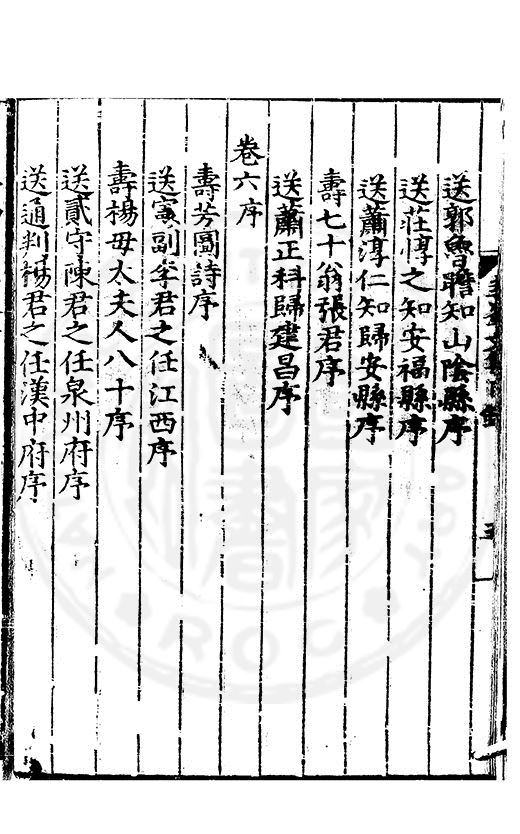 送郭魯瞻知山陰縣序
送莊惇之知安福縣序
送蕭淳仁知歸安縣序
壽七十翁張君序
送蕭正科歸建昌序
卷六序
壽芳圖詩序
送憲副李君之任江西序
壽楊母太夫人八十序
送貳守陳君之任泉州府序
送通判楊君之任漢中府序